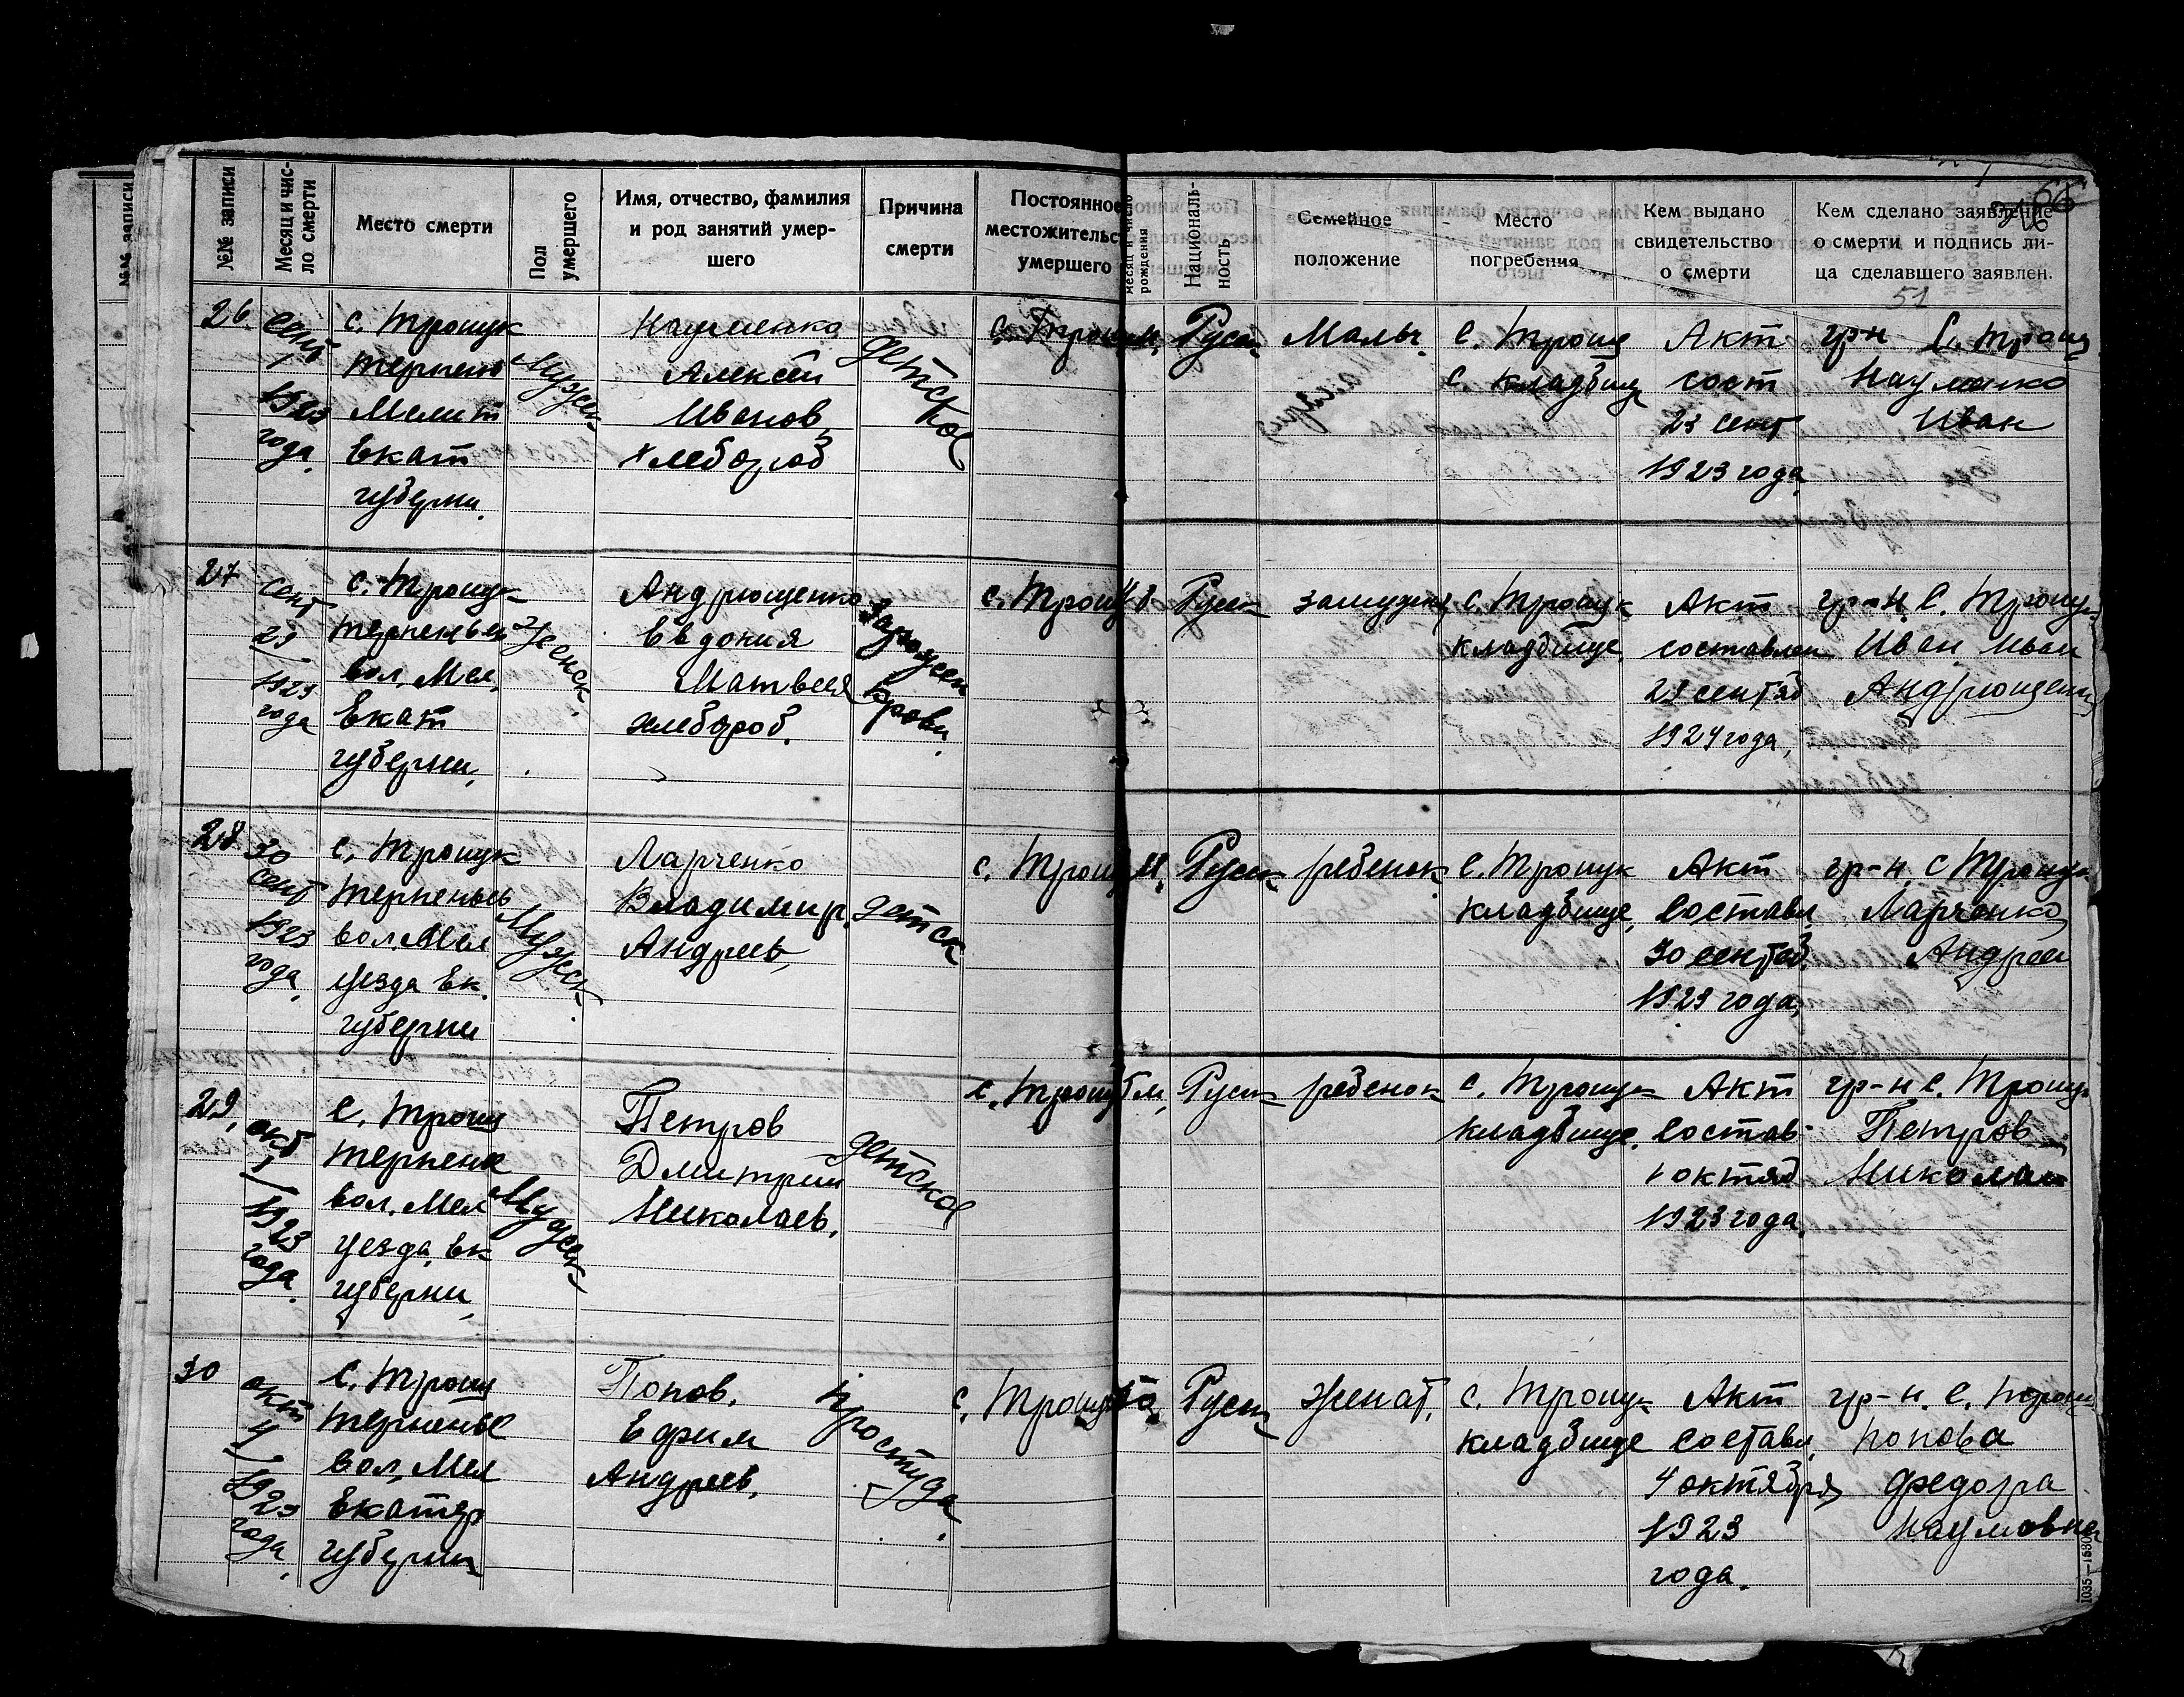 №№ записи
Месяц и чис-
ло смерти
Место смерти
Пол
умершего
Имя, отчество, фамилия
и род занятий умер-
шего
Причина
смерти
Постоянное
местожительс
умершего
месяц и число
рождения
Националь-
ность
Семейное
положение
Место
погребения
Кем выдано
свидетельство
о смерти
Кем сделано заявление
о смерти и подпись ли-
ца сделавшего заявлен.
51
№№ записи
26
сент
1
1923
года
с. Трощук
Терпень
Мелит
Екат
губерни
Мужск
Науменко
Алексей
Иванов
хлебороб
детское
с. Трощ
Руск
Малы
С. Трощ
с. кладбищ
Акт
сост
23 сент
1923 года
гр-н С. Трощ
Науменко
Иван
27
сент
29
1923
года
с. Трощук
Терпеньев
вол. Мел,
Екат
губерни,
Женск.
Андрющенко
Евдокия
Матвеев
хлебороб.
Заражен
крови.
с. Трощ
Руск
замужня
С. Трощук
кладбище
Акт
составлен
29 сентяб
1924 года,
гр-н С. Трощук
Иван Иван
Андрющенк
28
30
сент
1923
года.
с. Трощук
Терпеньев
вол. Мел
уезда Ек.
губерни
Мужск.
Ларченко
Владимир
Андреев,
детск
с. Трощ
Руск
ребенок
С. Трощук
кладбище,
Акт
Составл
30 сентяб
1923 года,
гр-н С Трощук
Ларченко
Андрей
29,
окт
1
1923
года.
С. Трощ
Терпень
вол. Мел
уезда, Ек
губерни,
Мужск
Петров
Дмитрий
Николаев.
детское
с. Трощ
Руск
ребенок
с. Трощук
кладбище.
Акт
Состав-
1 октяб
1923 года.
гр-н С. Трощук
Петров
Николай
30
окт
4
1923
года.
С. Трощ
Терпенье
вол. Мел
Екатер
губерни
Попов.
Ефим
Андреев.
простуда.
с. Трощ
Руск
женат.
с. Трощук
кладбище
Акт
составл
4 октября
1923
года.
гр-н. С. Трощ
Попова
Федора
Наумовна
1035—1530